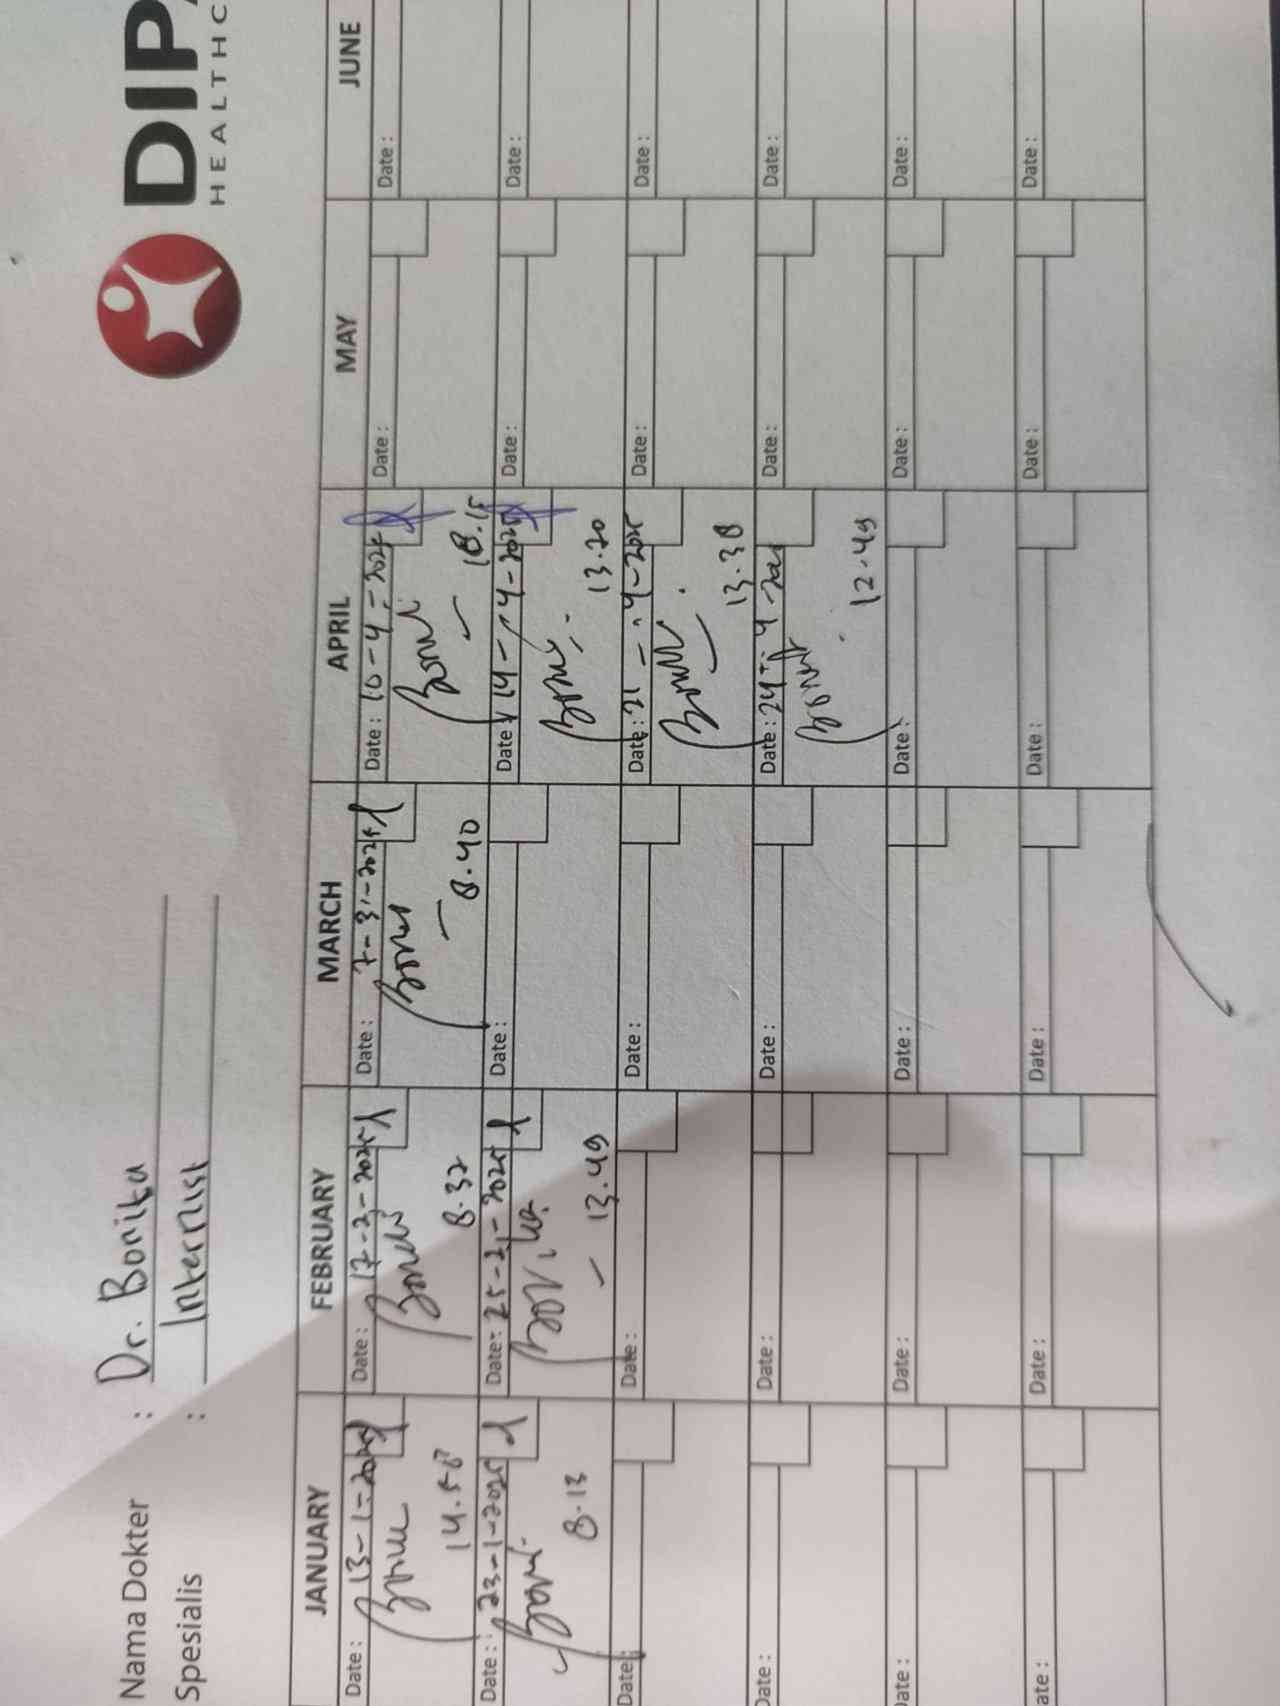 DIPA
HEALTHC
Nama Dokter : Dr. Bonita
Spesialis : Internist
JANUARY FEBRUARY MARCH APRIL MAY JUNE
Date: 13-1-2025 Date: 17-2-2025 Date: 7-3-2025 Date: 10-4-2025 Date: Date:
14.58 8.32 8.40 18.15
Date: 23-1-2025 Date: 25-2-2025 Date: Date: 14-4-2025 Date: Date:
8.13 13.49 13.20
Date: Date: Date: Date: 21-4-2025 Date: Date:
13.38
Date: Date: Date: Date: 24-4-202 Date: Date:
12.49
Date: Date: Date: Date: Date: Date:
Date: Date: Date: Date: Date: Date: